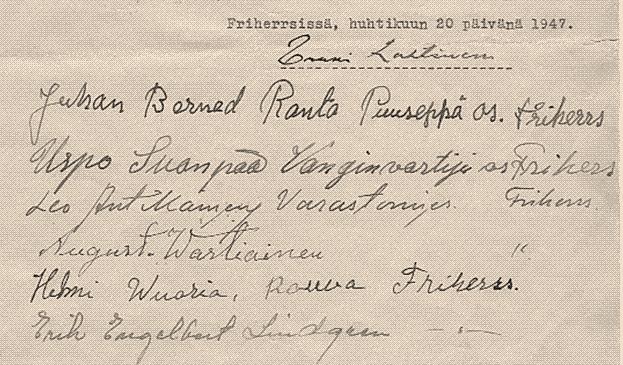 Friherrsissä, huhtikuun 20 päivänä 1947.
Laitinen
Juhan Bernad Ranta Puuseppä os. Friherrs
Urpo Suanpää Vanginvartija os Frihers
Leo Antikainen Varastomies. Friherrs.
August. Wartiainen "
Helmi Wuoria, rouva Friherrs.
Erik Engelbert Lindgren — " —